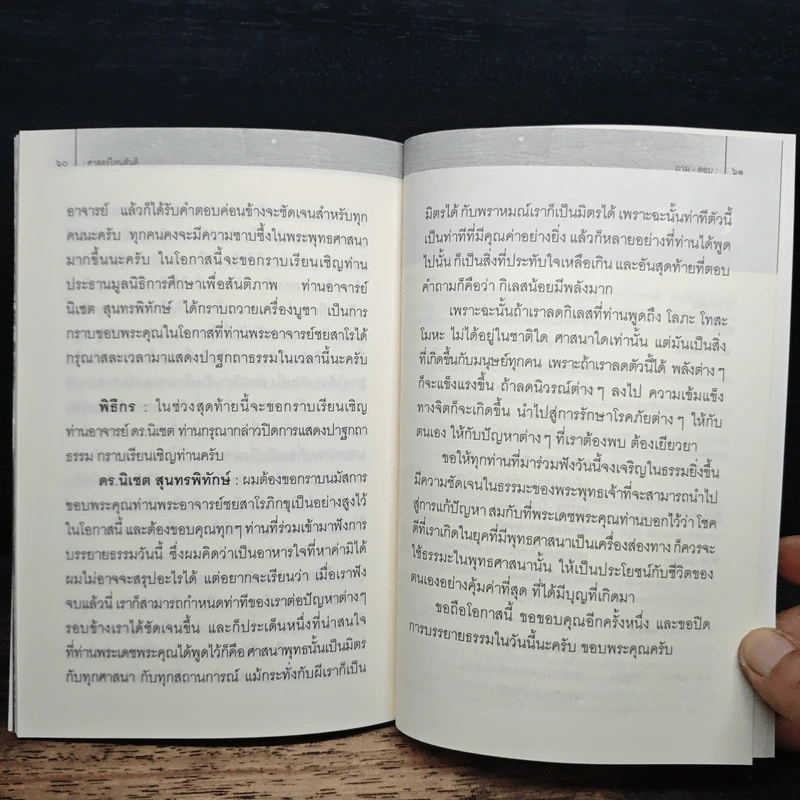 ๖๐ : ศาสตร์ไหนสันติ
อาจารย์ แล้วก็ได้รับคำตอบค่อนข้างจะชัดเจนสำหรับทุก
คนนะครับ ทุกคนคงจะมีความซาบซึ้งในพระพุทธศาสนา
มากขึ้นนะครับ ในโอกาสนี้จะขอกราบเรียนเชิญท่าน
ประธานมูลนิธิการศึกษาเพื่อสันติภาพ ท่านอาจารย์
นิเซต สุนทรพิทักษ์ ได้กราบถวายเครื่องบูชา เป็นการ
กราบขอบพระคุณในโอกาสที่ท่านพระอาจารย์ชยสาโรได้
กรุณาสละเวลามาแสดงปาฐกถาธรรมในเวลานี้นะครับ
พิธีกร : ในช่วงสุดท้ายนี้จะขอกราบเรียนเชิญ
ท่านอาจารย์ ดร.นิเซต ท่านกรุณากล่าวปิดการแสดงปาฐกถา
ธรรม กราบเรียนเชิญท่านครับ
ดร.นิเซต สุนทรพิทักษ์ : ผมต้องขอกราบนมัสการ
ขอบพระคุณท่านพระอาจารย์ชยสาโรภิกขุเป็นอย่างสูงไว้
ในโอกาสนี้ และต้องขอบคุณทุกๆ ท่านที่ร่วมเข้ามาฟังการ
บรรยายธรรมวันนี้ ซึ่งผมคิดว่าเป็นอาหารใจที่หาค่ามิได้
ผมไม่อาจจะสรุปอะไรได้ แต่อยากจะเรียนว่า เมื่อเราฟัง
จบแล้วนี่ เราก็สามารถกำหนดท่าทีของเราต่อปัญหาต่างๆ
รอบข้างเราได้ชัดเจนขึ้น และก็ประเด็นหนึ่งที่น่าสนใจ
ที่ท่านพระเดชพระคุณได้พูดไว้ก็คือ ศาสนาพุทธนั้นเป็นมิตร
กับทุกศาสนา กับทุกสถานการณ์ แม้กระทั่งกับผีเราก็เป็น
ถาม - ตอบ : ๖๑
มิตรได้ กับพราหมณ์เราก็เป็นมิตรได้ เพราะฉะนั้นท่าทีตัวนี้
เป็นท่าทีที่มีคุณค่าอย่างยิ่ง แล้วก็หลายอย่างที่ท่านได้พูด
ไปนั้น ก็เป็นสิ่งที่ประทับใจเหลือเกิน และอันสุดท้ายที่ตอบ
คำถามก็คือว่า กิเลสน้อยมีพลังมาก
เพราะฉะนั้นถ้าเราลดกิเลสที่ท่านพูดถึง โลภะ โทสะ
โมหะ ไม่ได้อยู่ในชาติใด ศาสนาใดเท่านั้น แต่มันเป็นสิ่ง
ที่เกิดขึ้นกับมนุษย์ทุกคน เพราะถ้าเราลดตัวนี้ได้ พลังต่างๆ
ก็จะแข็งแรงขึ้น ถ้าลดนิวรณ์ต่างๆ ลงไป ความเข้มแข็ง
ทางจิตก็จะเกิดขึ้น นำไปสู่การรักษาโรคภัยต่างๆ ให้กับ
ตนเอง ให้กับปัญหาต่างๆ ที่เราต้องพบ ต้องเยียวยา
ขอให้ทุกท่านที่มาร่วมฟังวันนี้จงเจริญในธรรมยิ่งขึ้น
มีความชัดเจนในธรรมะของพระพุทธเจ้าที่จะสามารถนำไป
สู่การแก้ปัญหา สมกับที่พระเดชพระคุณท่านบอกไว้ว่า โชค
ดีที่เราเกิดในยุคที่มีพุทธศาสนาเป็นเครื่องส่องทาง ก็ควรจะ
ใช้ธรรมะในพุทธศาสนานั้น ให้เป็นประโยชน์กับชีวิตของ
ตนเองอย่างคุ้มค่าที่สุด ที่ได้มีบุญที่เกิดมา
ขอถือโอกาสนี้ ขอขอบคุณอีกครั้งหนึ่ง และขอปิด
การบรรยายธรรมในวันนี้นะครับ ขอบพระคุณครับ